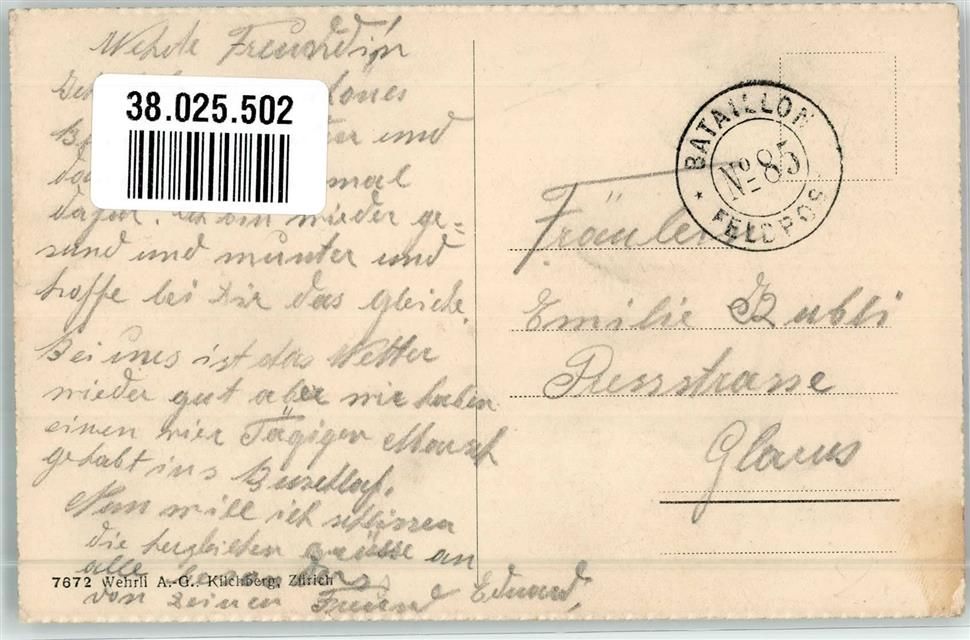 Wehrte Freundin
38.025.502
und
mal
ich bin wieder ge=
sund und munter und
hoffe bei Dir das gleiche.
Bei uns ist das Wetter
wieder gut aber wir haben
einen vier Tägigen Marsch
gehabt ins
Nun will ich schlissen
die herzlichsten grüsse an
alle besonders
von deinem Freund Eduard,
7672 Wehrli A.-G., Kilchberg, Zürich
BATAILLON
No 85
* FELDPOST
Fräulein
Emilie Bubli
Pressstrasse
Glarus